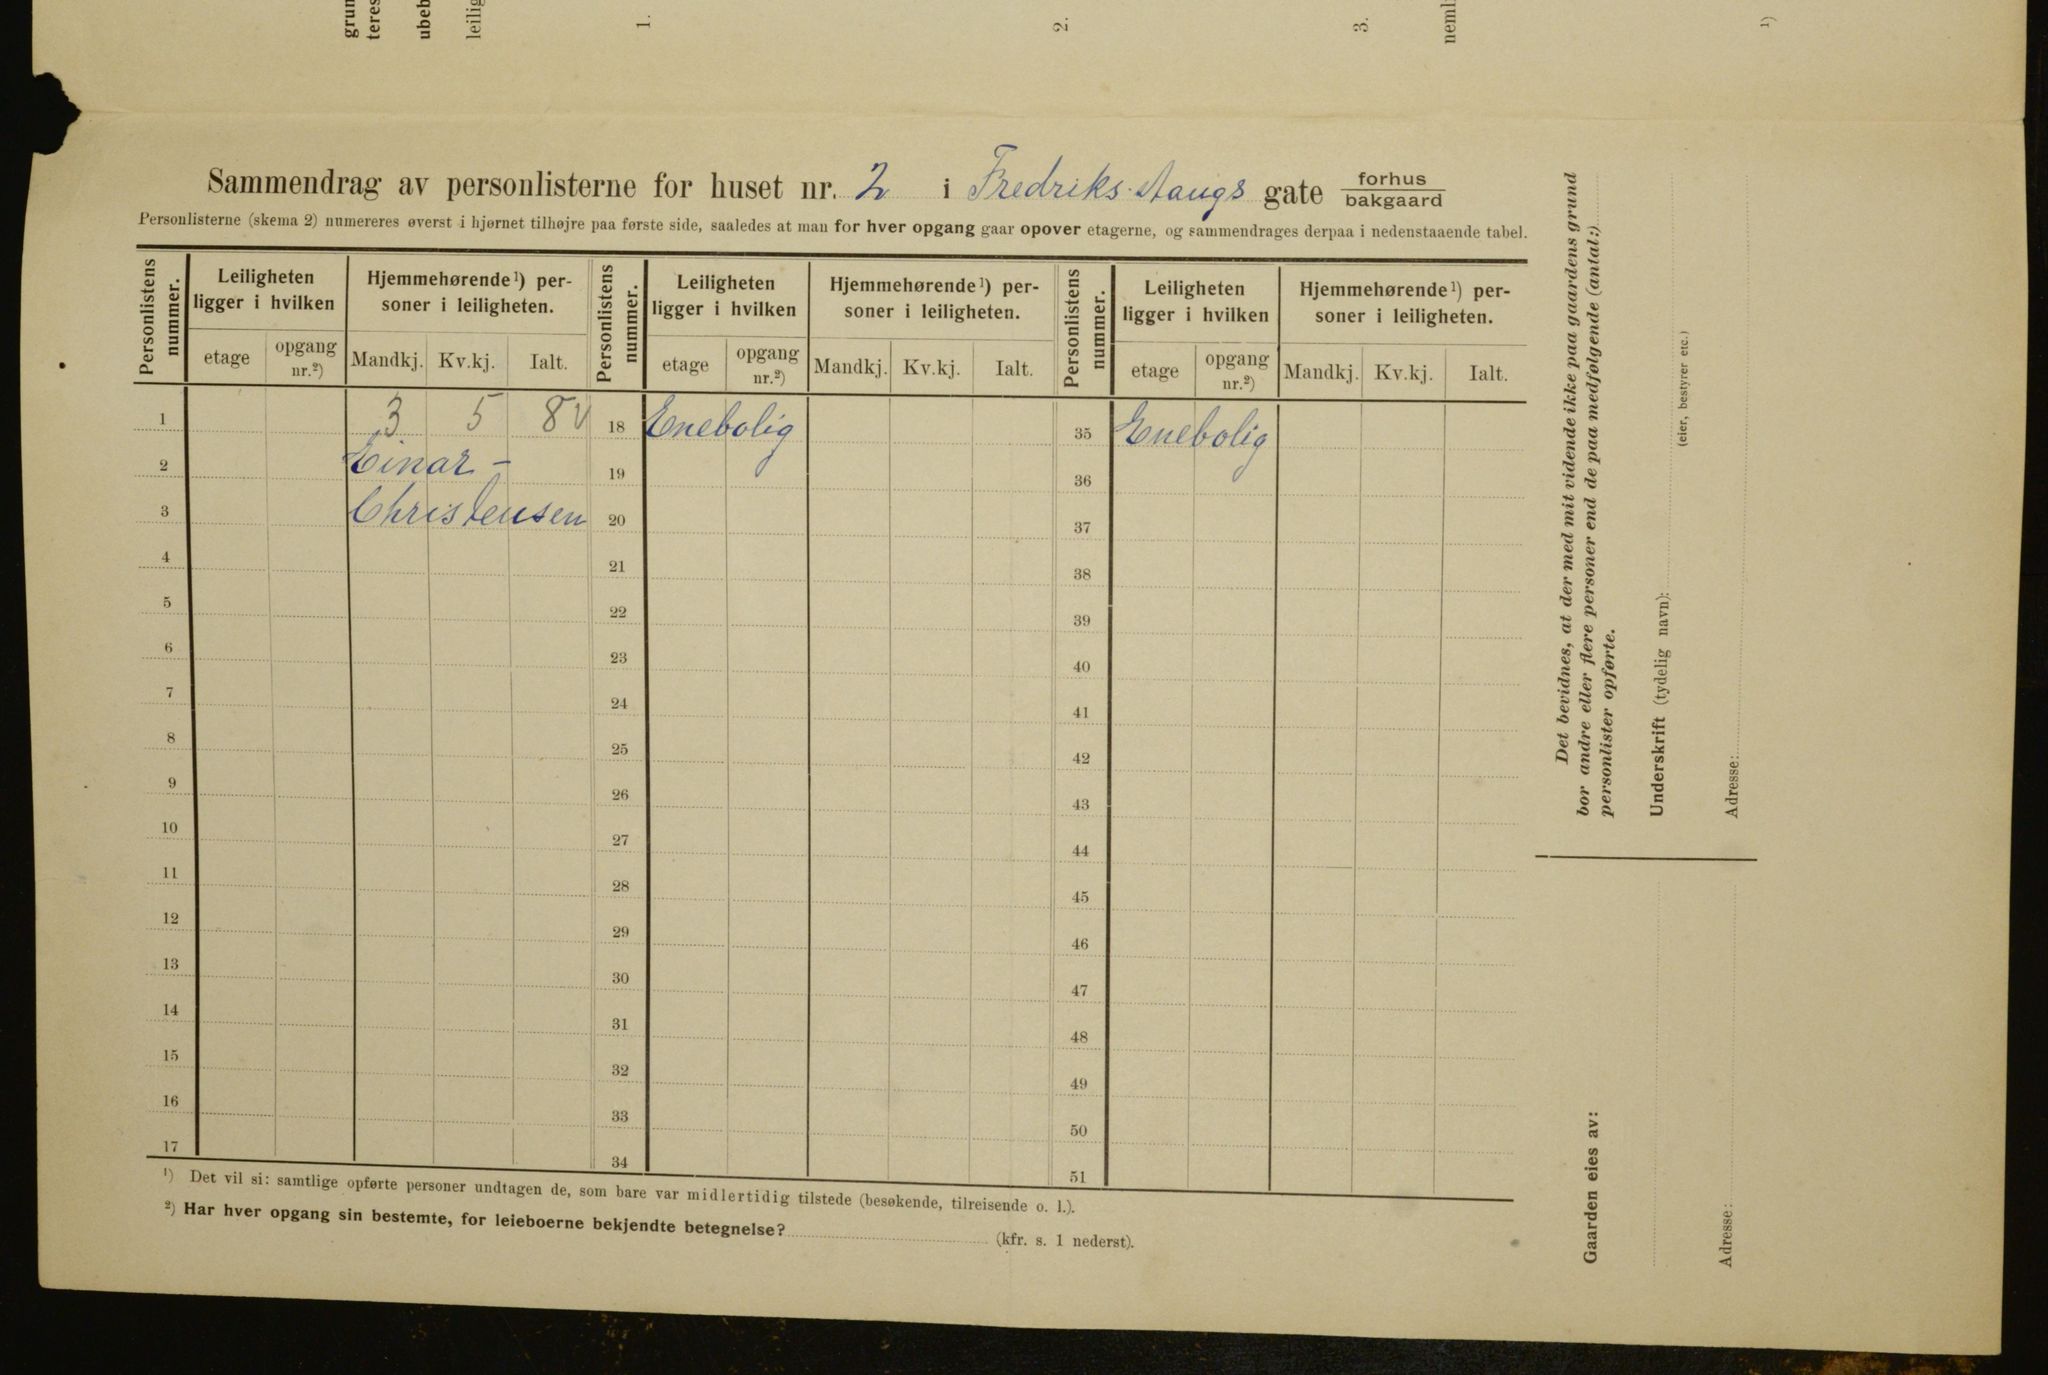 grun
teres
ubeb
leilig
1.
2.
3.
neml
1)
Sammendrag av personlisterne for huset nr. 2 i Fredriks Haugs gate forhus bakgaard
Personlisterne (skema 2) numereres øverst i hjørnet tilhøjre paa første side, saaledes at man for hver opgang gaar opover etagerne, og sammendrages derpaa i nedenstaaende tabel.
Personlistens nummer. Leiligheten ligger i hvilken Hjemmehørende1) personer i leiligheten. Personlistens nummer. Leiligheten ligger i hvilken Hjemmehørende1) personer i leiligheten. Personlistens nummer. Leiligheten ligger i hvilken Hjemmehørende1) personer i leiligheten.
etage opgang nr.2) Mandkj. Kv.kj. Ialt. etage opgang nr.2) Mandkj. Kv.kj. Ialt. etage opgang nr.2) Mandkj. Kv.kj. Ialt.
1 3 5 8 v 18 Enebolig 35 Enebolig
2 Einar - 19 36
3 Christensen 20 37
4 21 38
5 22 39
6 23 40
7 24 41
8 25 42
9 26 43
10 27 44
11 28 45
12 29 46
13 30 47
14 31 48
15 32 49
16 33 50
17 34 51
1) Det vil si: samtlige opførte personer undtagen de, som bare var midlertidig tilstede (besøkende, tilreisende o. l.).
2) Har hver opgang sin bestemte, for leieboerne bekjendte betegnelse? (kfr. s. 1 nederst).
Det bevidnes, at der med mit vidende ikke paa gaardens grund
bor andre eller flere personer end de paa medfølgende (antal:)
personlister opførte.
Underskrift (tydelig navn):
(eier, bestyrer etc.)
Adresse:
Gaarden eies av:
Adresse: